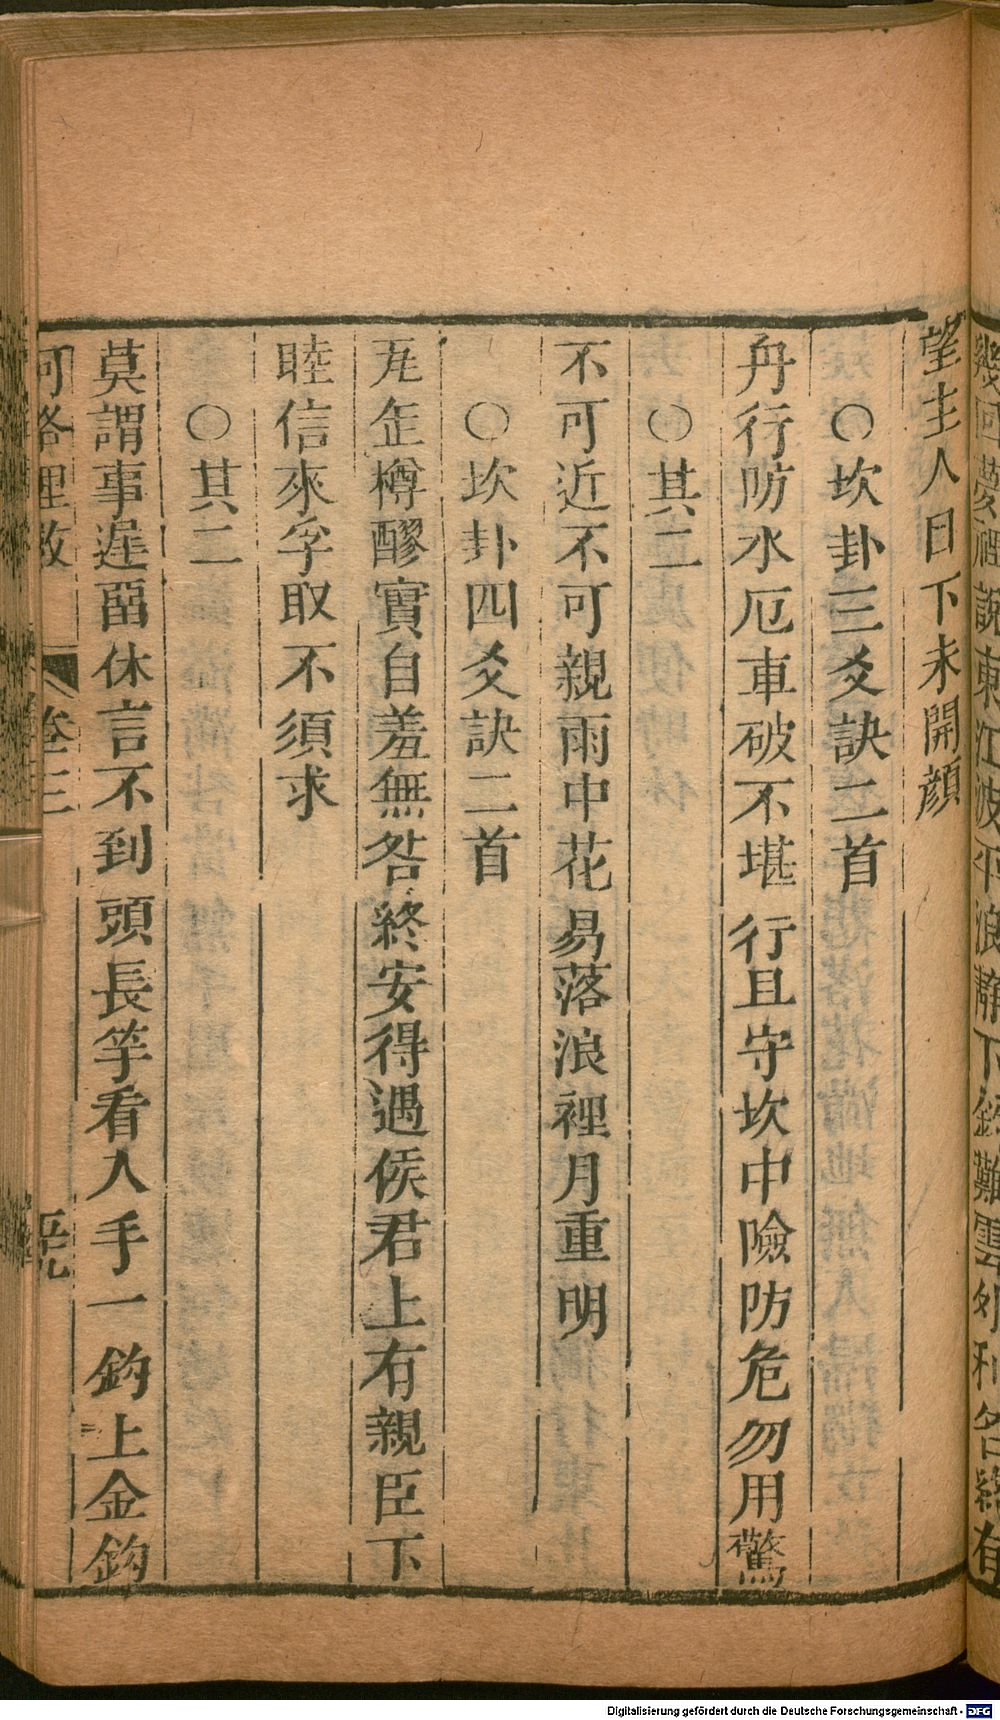 望主人日下未開顔
○坎卦三爻訣二首
舟行防水厄車破不堪行且守坎中險防危勿用驚
○其二
不可近不可親雨中花易落浪裡月重明
○坎卦四爻訣二首
缶樽醪實自羞無咎終安得遇侯君上有親臣下
睦信來孚取不須求
○其二
莫謂事遲留休言不到頭長竿看入手一鈎上金鈎
河洛理数 卷三
幾回夢裡說東江波平浪靜下釣難雲外利名終有
Digitalisierung gefördert durch die Deutsche Forschungsgemeinschaft - DFG